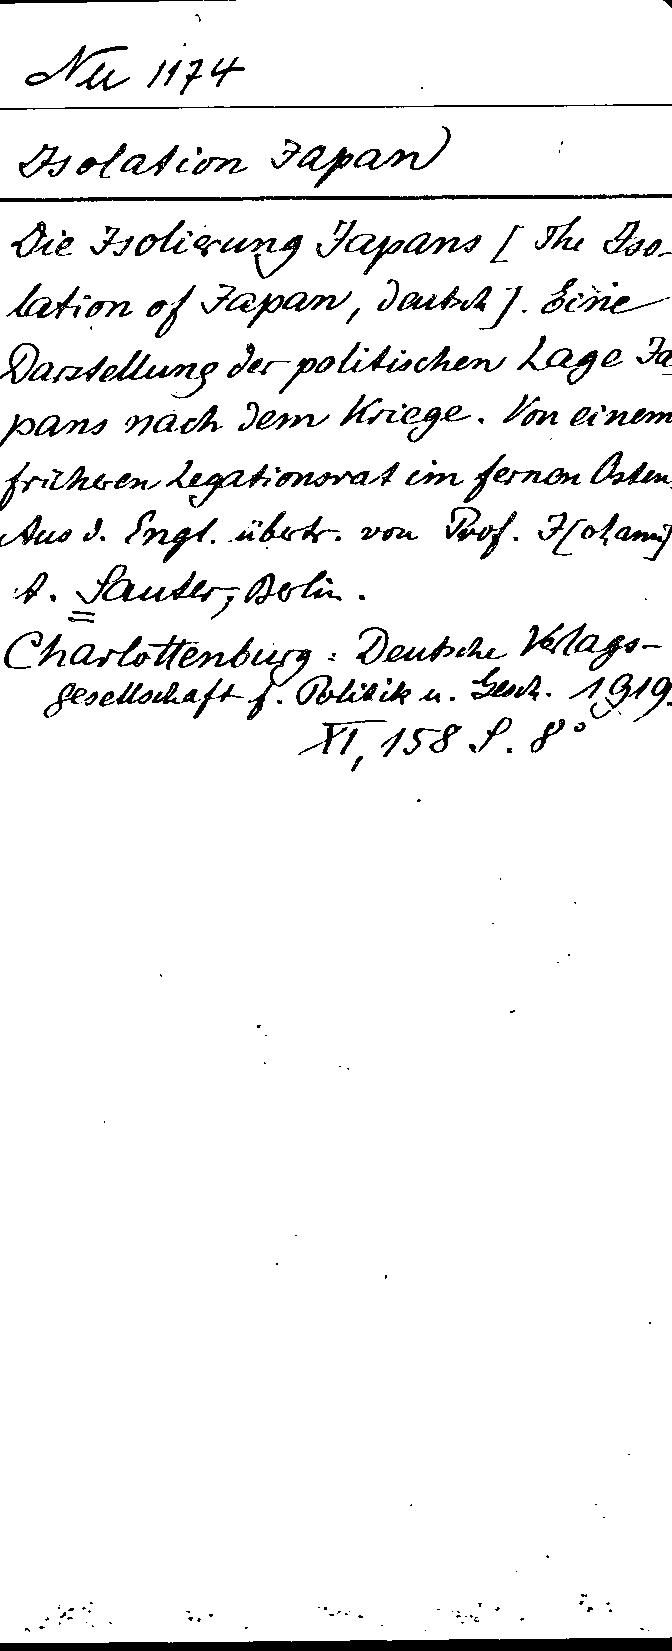 Nu 1174
Isolation Japan
Die Isolierung Japans [The Iso-
lation of Japan, deutsch]. Eine
Darstellung der politischen Lage Ja
pans nach dem Kriege. Von einem
früheren Legationsrat im fernen Osten.
Aus d. Engl. übertr. von Prof. J[ohann]
A. Sauter, Berlin.
Charlottenburg: Deutsche Verlags-
gesellschaft f. Politik u. Gesch. 1919.
XI, 158 S. 8°